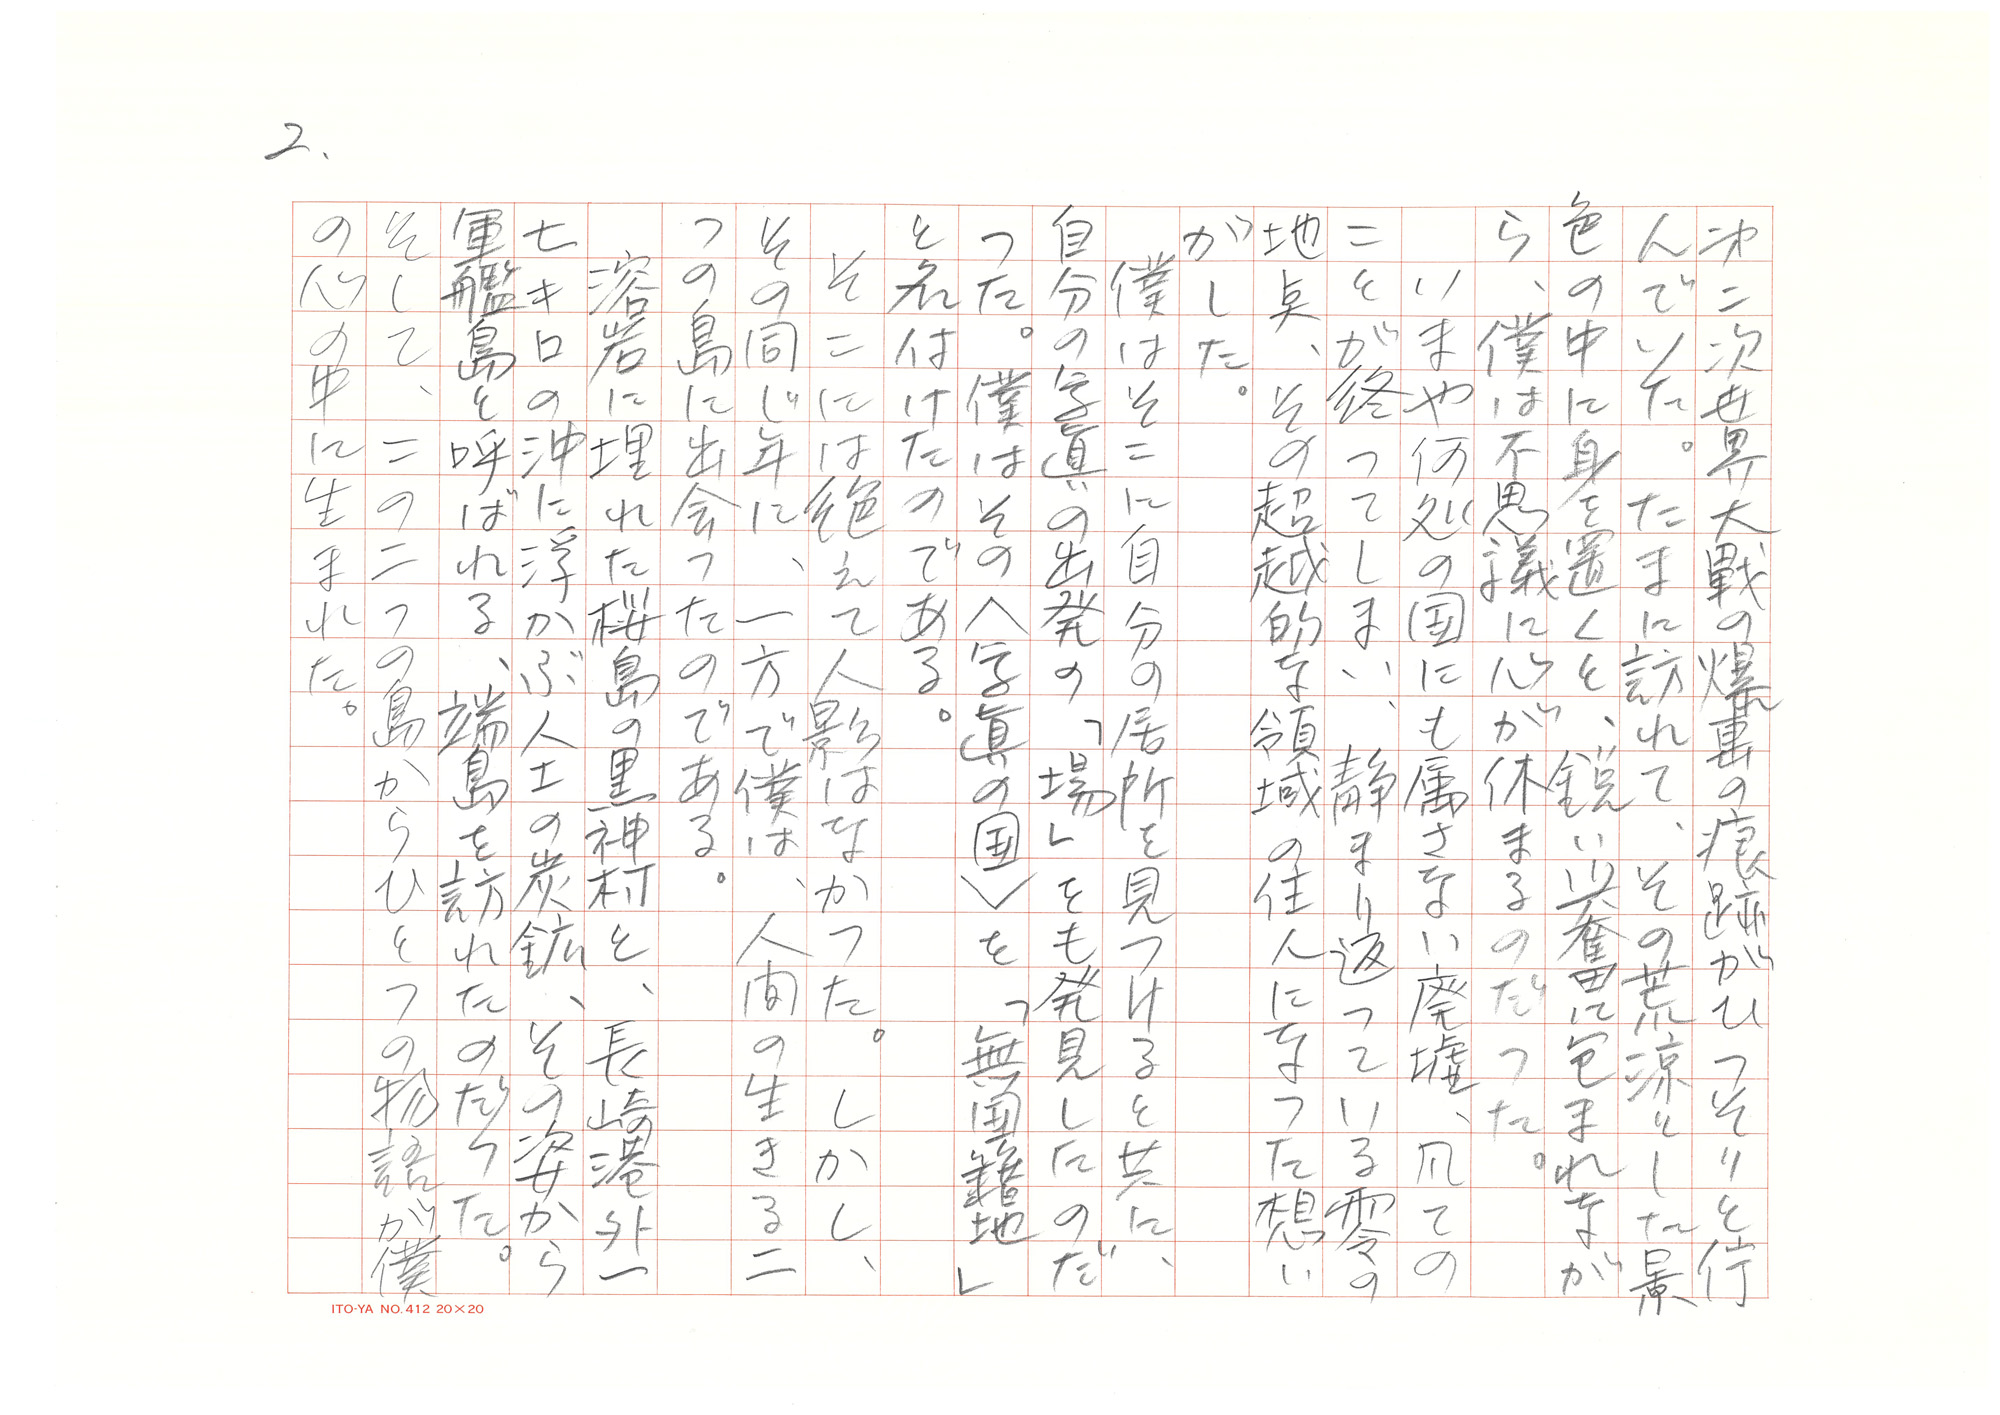 2、
第二次世界大戦の爆裏の痕跡がひっそりと佇
んでいた。たまに訪れて、その荒涼とした景
色の中に身を置くと、鋭い興奮に包まれなが
ら、僕は不思議に心が休まるのだった。
いまや何処の国にも属さない廃墟、凡ての
ことが終ってしまい、静まり返っている零の
地点、その超越的な領域の住人になった想い
がした。
僕はそこに自分の居所を見つけると共に、
自分の写真の出発の「場」をも発見したのだ
った。僕はその〈写真の国〉を「無国籍地」
と名付けたのである。
そこには絶えて人影はなかった。しかし、
その同じ年に、一方で僕は、人間の生きる二
つの島に出会ったのである。
溶岩に埋れた桜島の黒神村と、長崎港外一
七キロの沖に浮かぶ人工の炭鉱、その姿から
軍艦島と呼ばれる、端島を訪れたのだった。
そして、二の二つの島からひとつの物語が僕
の心の中に生まれた。
ITO-YA NO.412 20×20